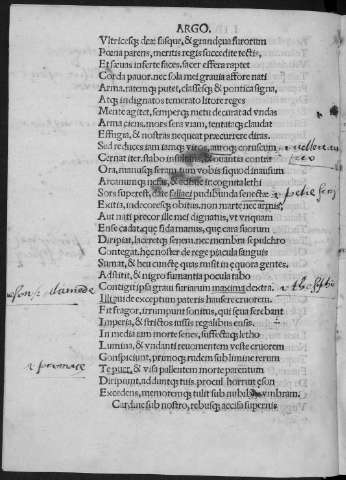 ARGO.
Vltricesq; deæ fasque, & grandęua furorum
Pœna parens, meritis regis succedite tectis,
Et sæuas inferte faces. sacer effera raptet
Corda pauor. nec sola mei grauia affore nati
Arma, ratemq; putet, classesq; & pontica signa,
Atq; indignatos temerato litore reges
Mente agitet, semperq; metu decurrat ad vndas
Arma ciens, mors sera viam, tentataq; claudat
Effugia, & nostras nequeat præcurrere diras.
Sad reduces iam iamq; viros, auroq; coruscum
Cernat iter. stabo insultans, & ouantia contra
Ora, manusq; feram. tum vobis siquod inausum
Arcanumq; nefas, & adhuc incognita lethi
Sors superest, date fallaci pudibunda senectæ
Exitia, indecoresq; obitus. non marte nec armis,
Aut nati precor ille mei dignatus, vt vnquam
Ense cadat. quę fida manus, quę cara suorum
Diripiat, laceretq; senem. nec membra sepulchro
Contegat. hęc noster de rege piacula sanguis
Sumat, & heu cunctę quas misit in ęquora gentes.
Adstitit, & nigro fumantia pocula tabo
Contigit ipsa graui furiarum maxima dextra.
Illi auide exceptum pateris hausere cruorem.
Fit fragor, irrumpunt sonitus, qui sęua ferebant
Imperia, & strictos iussis regalibus enses.
In media iam morte senes, suffectaq; letho
Lumina, & vndanti reuomentem veste cruorem
Conspiciunt. primoq; rudem sub limine rerum
Te puer, & visa pallentem morte parentum
Diripiunt, adduntq; tuis. procul horruit ęson
Excedens, memoremq; tulit sub nubibus vmbram.
Cardine sub nostro, rebusq; accisa supernis